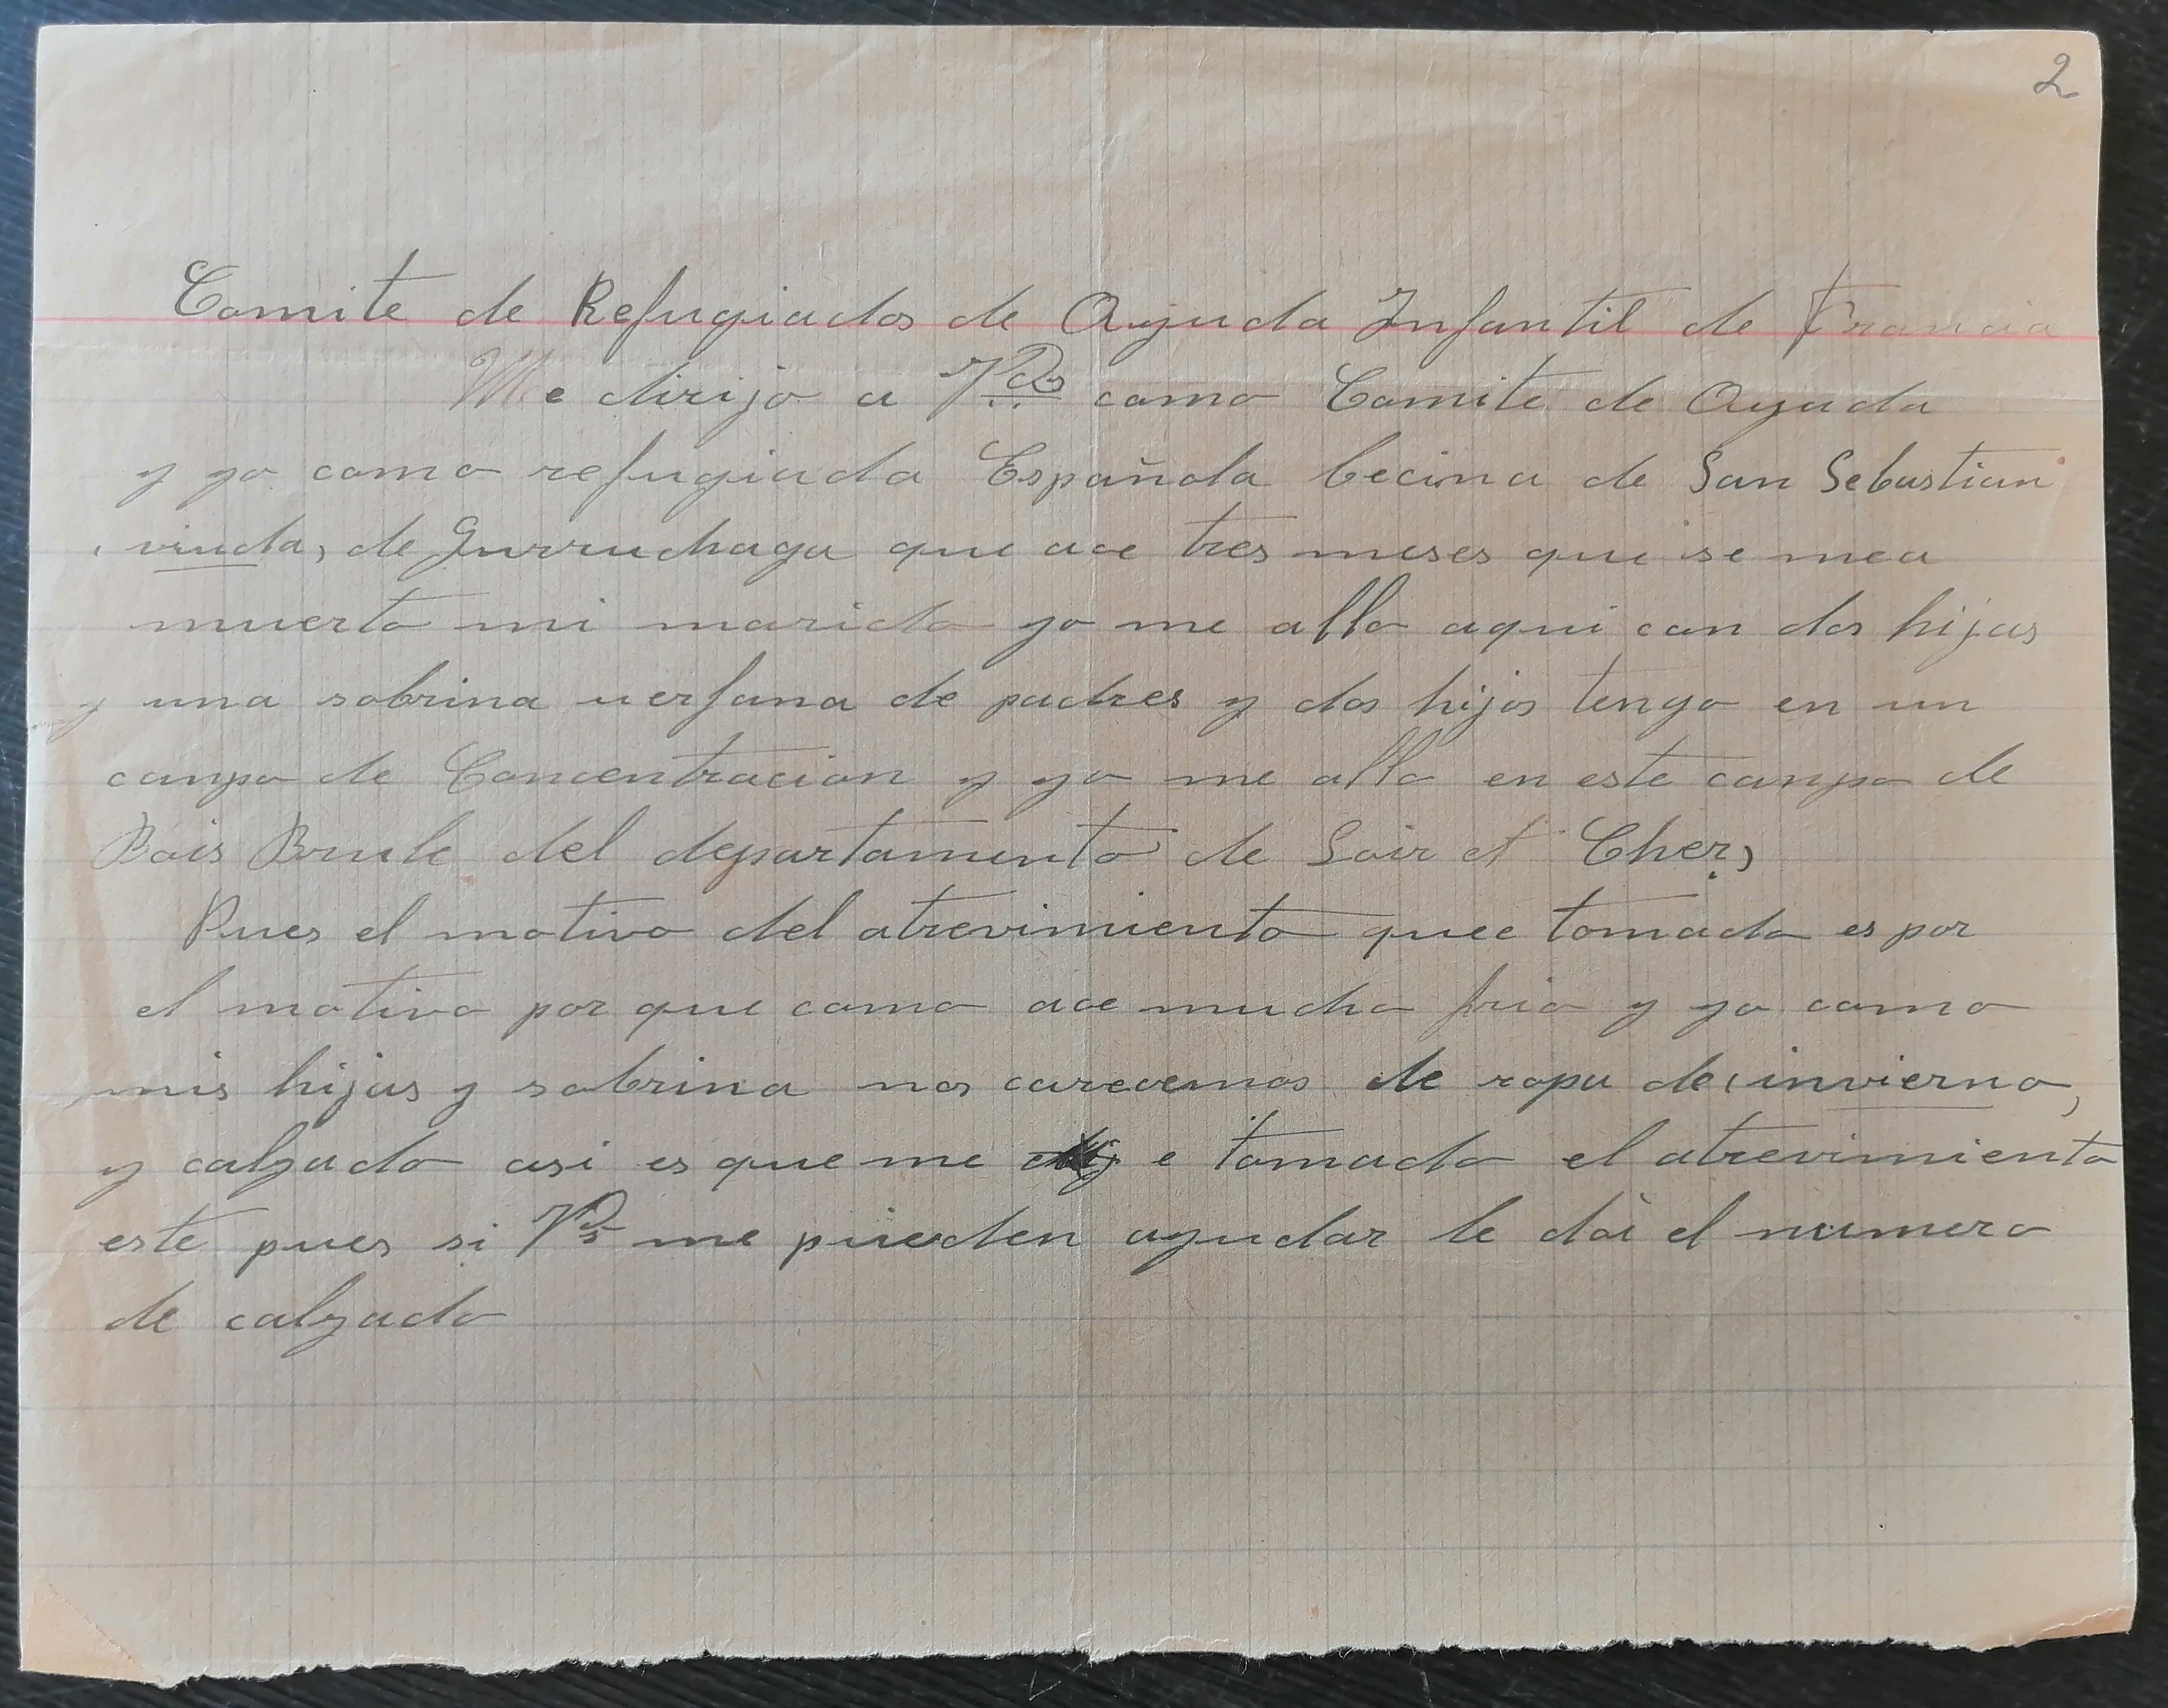 2
Comite de Refugiados de Ayuda Infantil de Francia
Me dirijo a Vds como Comite de Ayuda
y yo como refugiada Española becina de San Sebastian
, viuda, de Gurruchaga que ace tres meses que se mea
muerto mi marido yo me allo aqui con dos hijas
y una sobrina uerfana de padres y dos hijos tengo en un
canpo de Concentracion y yo me allo en este canpo de
Bois Brule del departamento de Loir et Cher,
Pues el motivo del atrevimiento quee tomado es por
el motivo por que como ace mucho frio y yo como
mis hijas y sobrina nos carecemos de ropa de invierno,
y calzado asi es que me e tomado el atrevimiento
este pues si Vds me pueden ayudar le doi el numero
de calzado